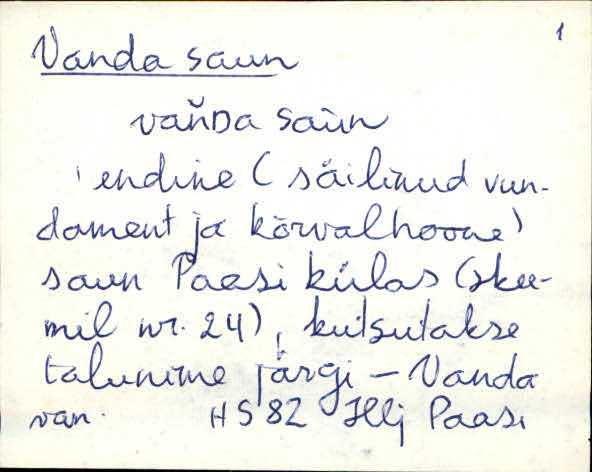 1
Vanda saun
vaňDa saùn
endine (säilinud vun-
dament ja kõrvalhoone)
saun Paasi külas (skee-
mil nr. 24), kutsutakse
talunime järgi – Vanda
van. HS 82 Hlj Paasi